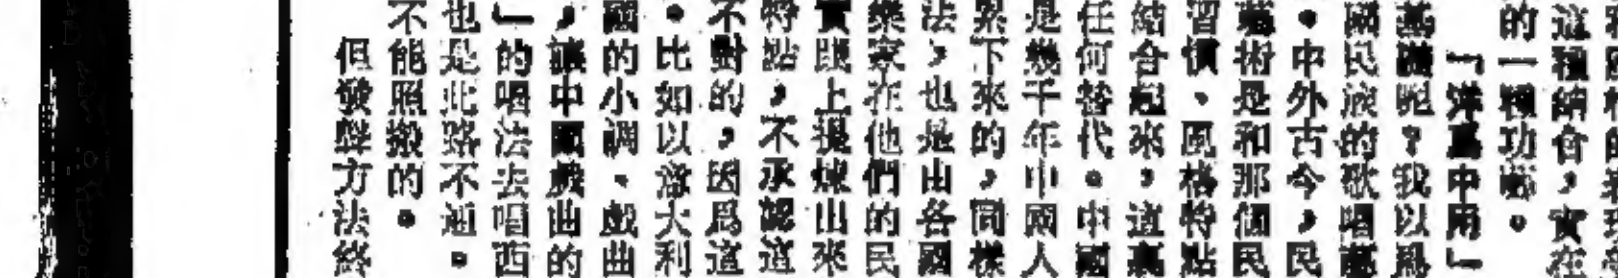 這種結合,實在
的一種功
「洋爲中用」
基礎呢?我以爲
國民族的歌唱藝
。中外古今,民
藝術是和那個民
習慣、風格特點
結合起來,這裏
任何替代。中國
是幾千年中國人
累下來的,同樣
法,也是由各國
樂家在他們的民
實踐上提煉出來
特點,不承認這
不對的,因爲這
。比如以意大利
國的小調、戲曲
,讓中國戲曲的
」的唱法去唱西
也是此路不通。
不能照搬的。
但發聲方法終